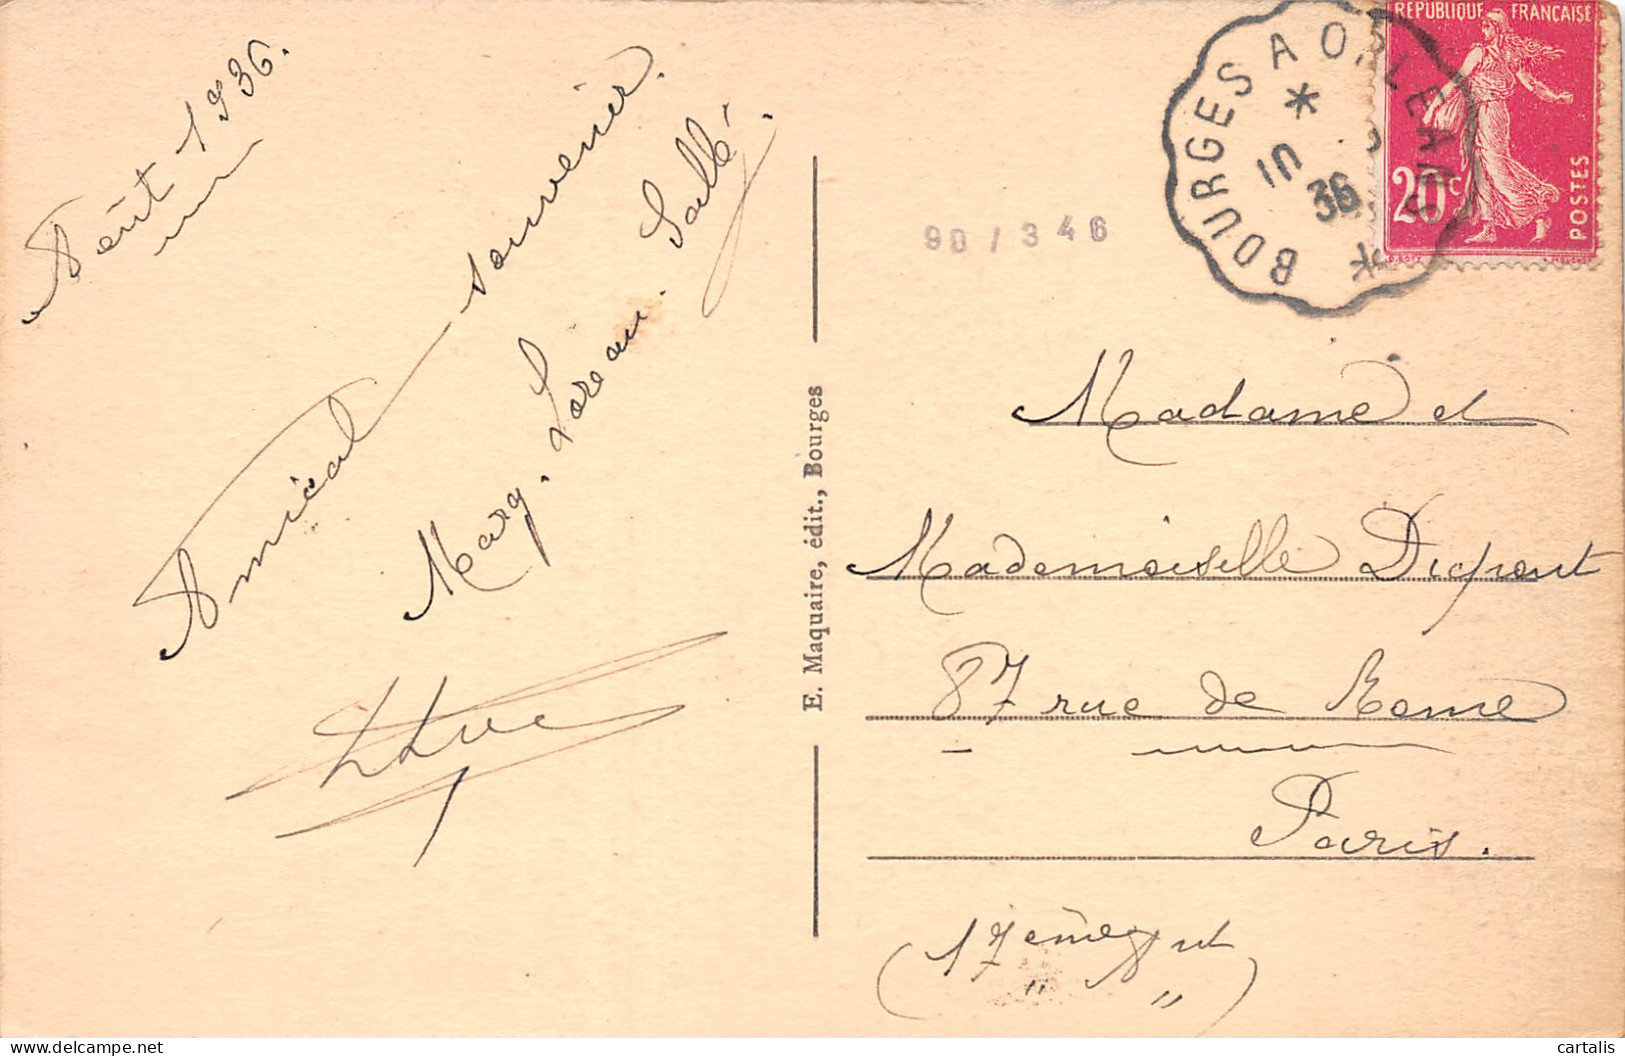 Août 1936.
Amical souvenir.
Marg. Loreau. Sallé.
E. Maquaire, édit., Bourges
90 / 346
BOURGES A ORLEANS
10
36
REPUBLIQUE FRANÇAISE
20c
POSTES
Madame et
Mademoiselle Dupont
87 rue de Rome
Paris.
(17ème
cartalis